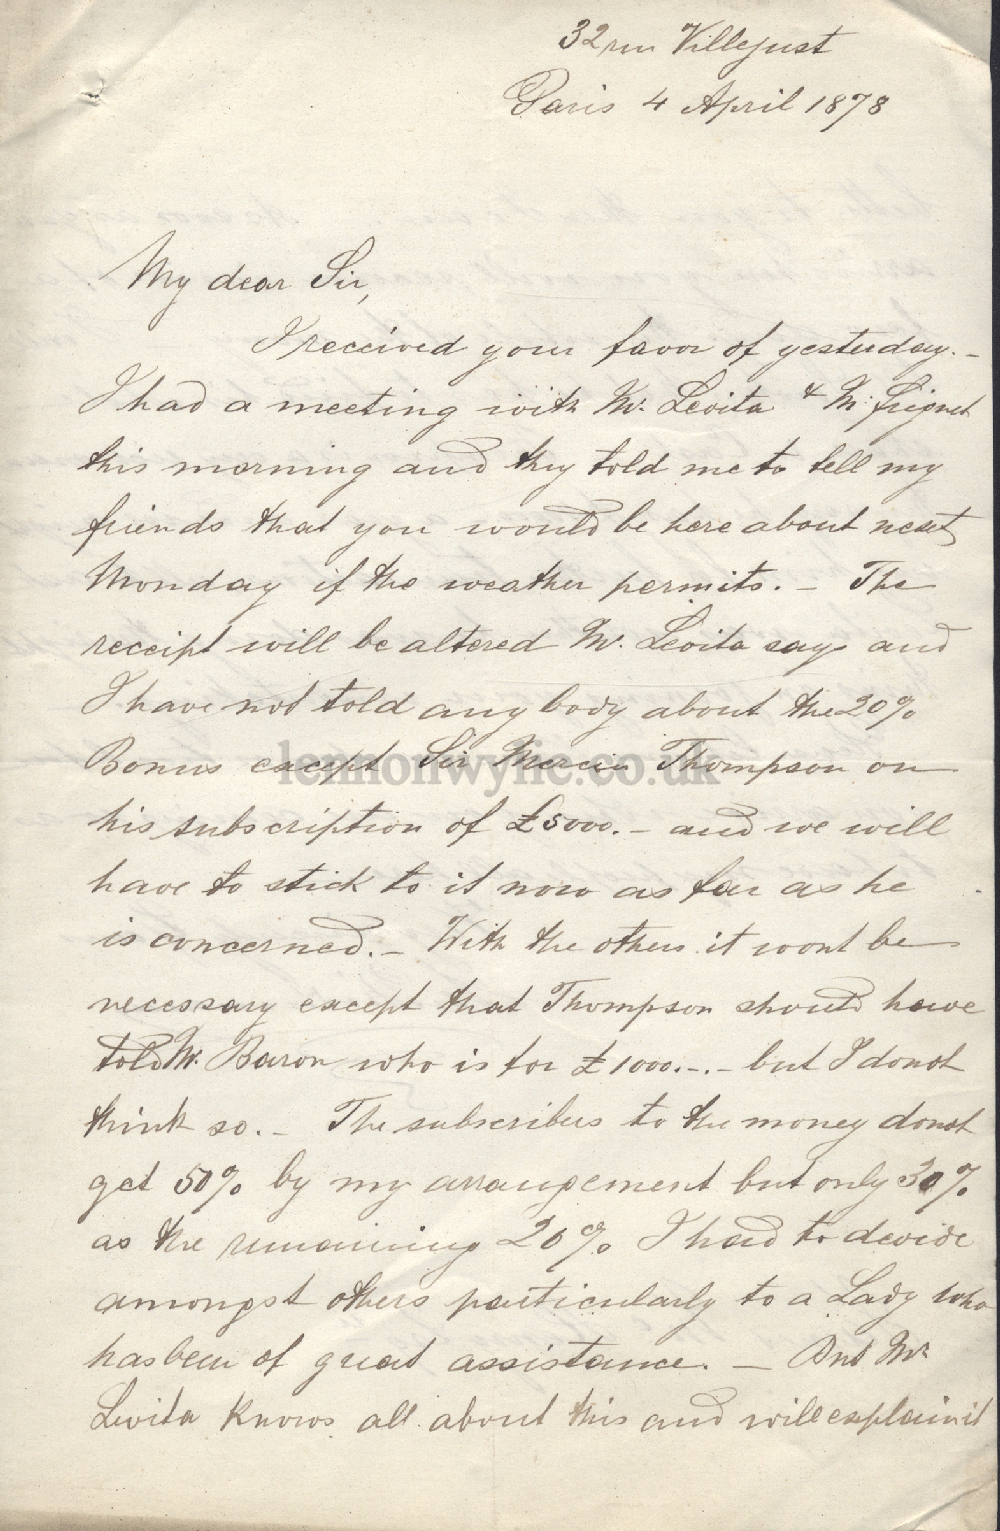 32 rue Villejust
Paris 4 April 1878
My dear Sir,
I received your favor of yesterday. -
I had a meeting with Mr. Levita & Mr.
this morning and they told me to tell my
friends that you would be here about next
Monday if the weather permits. - The
receipt will be altered Mr. Levita says and
I have not told any body about the 20%
Bonus except Sir Thompson on
lennonwylie.co.uk
his subscription of £5000. - and we will
have to stick to it now as far as he
is concerned. - With the others it wont be
necessary except that Thompson should have
told Mr. Baron who is for £1000.-.- but I donot
think so. - The subscribers to the money donot
get 50% by my arrangement but only 30%
as the remaining 20% I had to devide
amongst others particularly to a Lady who
has been of great assistance. - But Mr
Levita knows all about this and will explain it